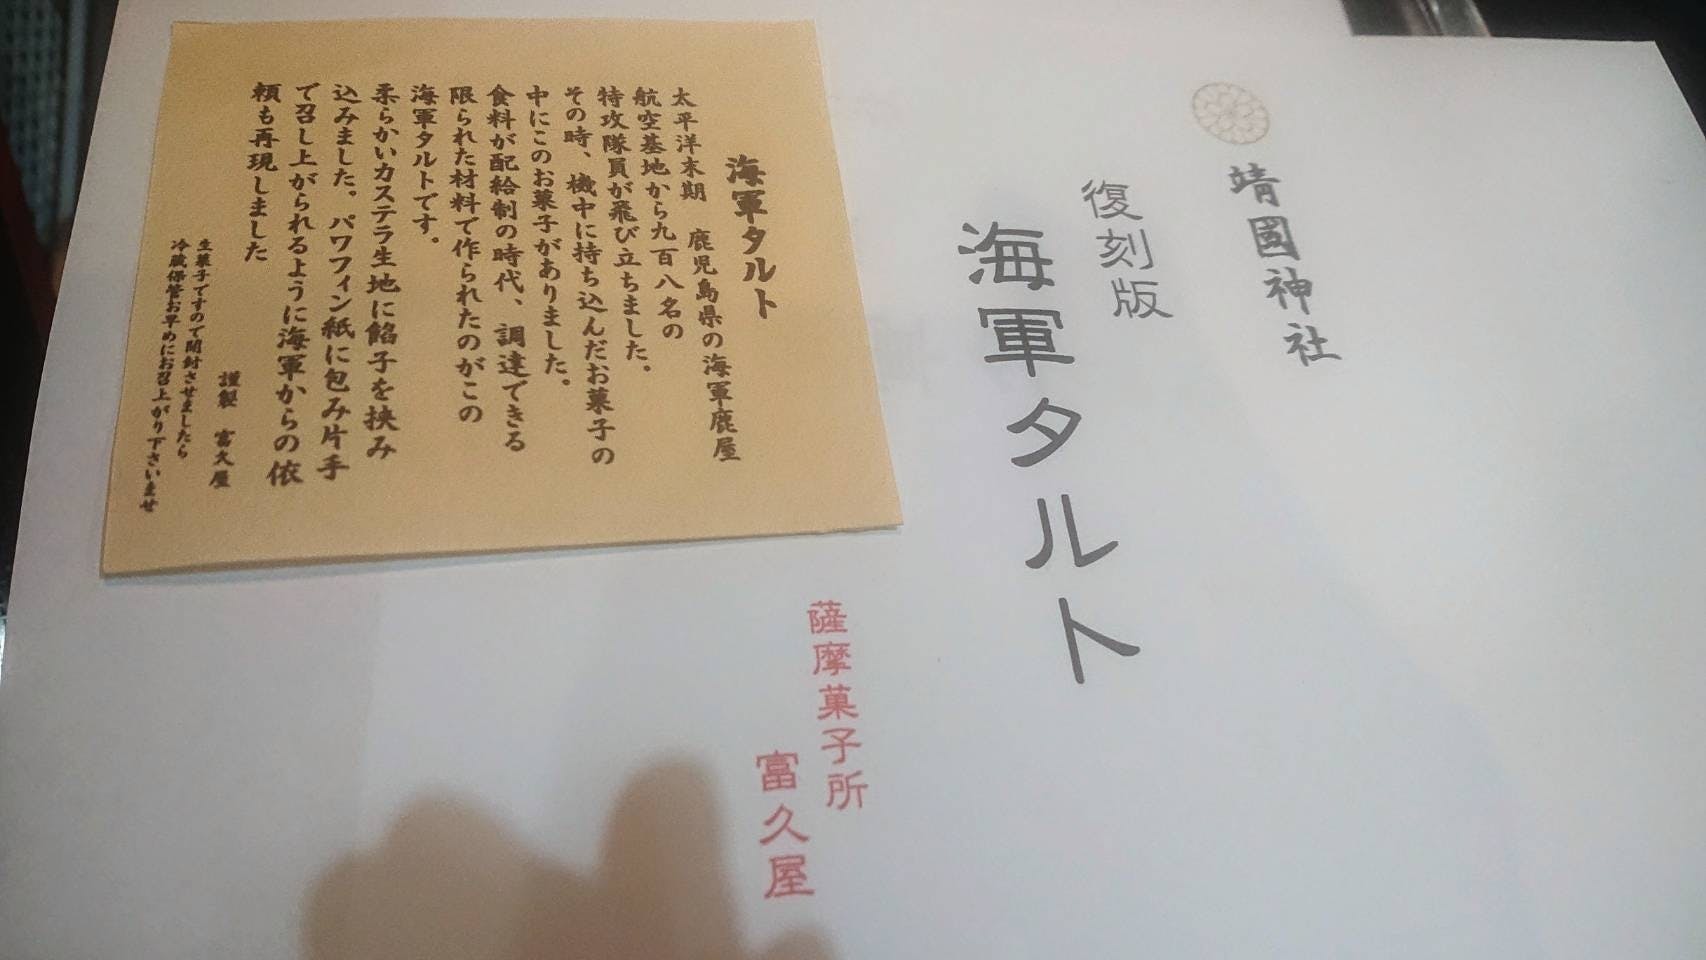 靖國神社
復刻版
海軍タルト
薩摩菓子所
富久屋
海軍タルト
太平洋末期　鹿児島県の海軍鹿屋
航空基地から九百八名の
特攻隊員が飛び立ちました。
その時、機中に持ち込んだお菓子の
中にこのお菓子がありました。
食料が配給制の時代、調達できる
限られた材料で作られたのがこの
海軍タルトです。
柔らかいカステラ生地に餡子を挟み
込みました。パワフィン紙に包み片手
で召し上がられるように海軍からの依
頼も再現しました
謹製　富久屋
生菓子ですので開封させましたら
冷蔵保管お早めにお召上がり下さいませ